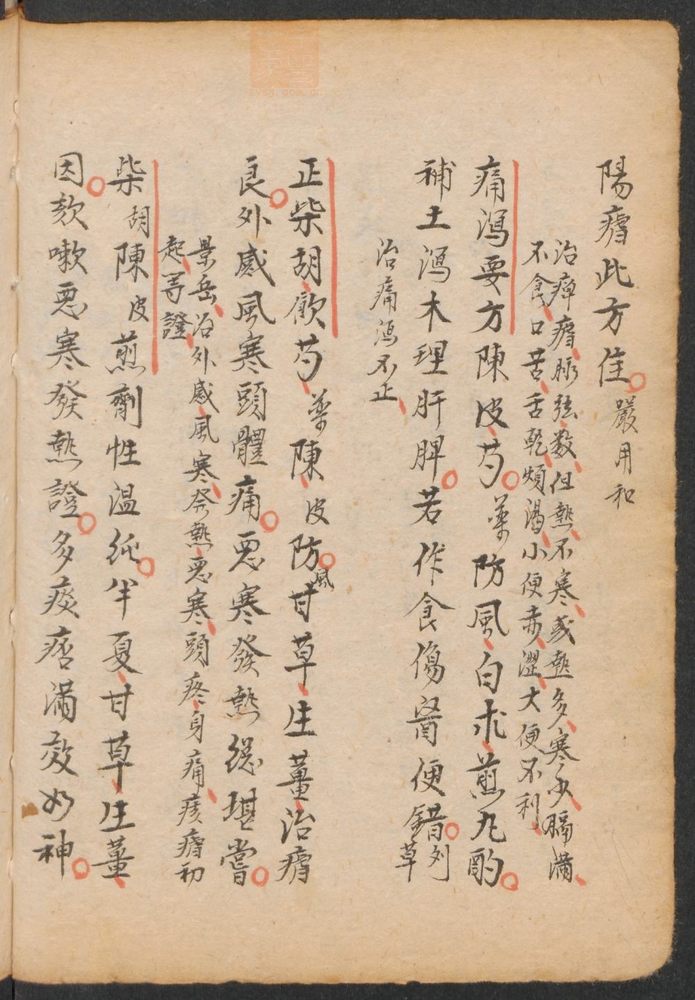 陽瘧此方佳嚴用和
治瘅瘧脉弦数但熱不寒或熱多寒少膈滿
不食口苦舌乾煩渴小便赤澀大便不利
痛瀉要方陳皮芍藥防風白朮煎丸酌
補土瀉木理肝脾若作食傷醫便錯刘草
治痛瀉不止
正柴胡飲芍藥陳皮防風甘草生薑治瘧
良外感風寒頭體痛惡寒發熱總堪嘗
景岳治外感風寒發熱惡寒頭疼身痛痎瘧初
起等證
柴胡陳皮煎劑性温純半夏甘草生薑
因欬嗽惡寒發熱證多痰痞滿效如神